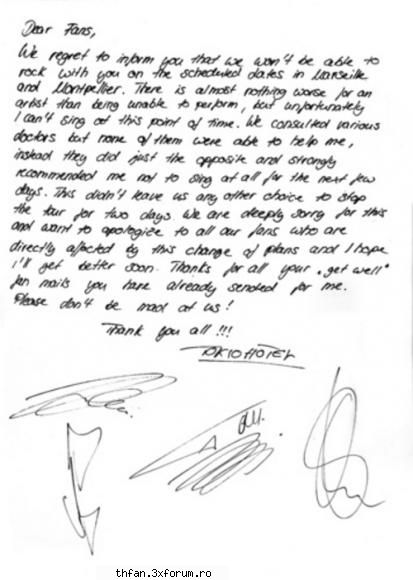 Dear Fans,
We regret to inform you that we won't be able to
rock with you on the scheduled dates in Marseille
and Montpellier. There is almost nothing worse for an
artist than being unable to perform, but unfortunately
I can't sing at this point of time. We consulted various
doctors but none of them were able to help me,
instead they did just the opposite and strongly
recommended me not to sing at all for the next few
days. This didn't leave us any other choice to stop
the tour for two days. We are deeply sorry for this
and want to apologize to all our fans who are
directly affected by this change of plans and I hope
I'll get better soon. Thanks for all your „get well"
fan mails you have already sended for me.
Please don't be mad at us!
Thank you all!!!
TOKIO HOTEL
thfan.3xforum.ro